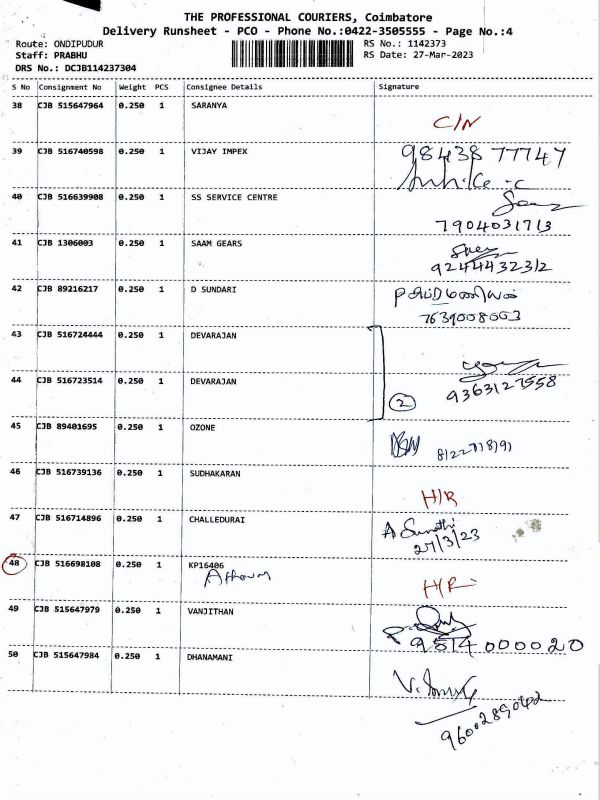 THE PROFESSIONAL COURIERS, Coimbatore
Delivery Runsheet - PCO - Phone No.:0422-3505555 - Page No.:4
Route: ONDIPUDUR RS No.: 1142373
Staff: PRABHU RS Date: 27-Mar-2023
DRS No.: DCJB114237304
S No Consignment No Weight PCS Consignee Details Signature
38 CJB 515647964 0.250 1 SARANYA
C/N
39 CJB 516740598 0.250 1 VIJAY IMPEX 98438 77747
40 CJB 516639908 0.250 1 SS SERVICE CENTRE
7904031713
41 CJB 1306003 0.250 1 SAAM GEARS
9244432312
42 CJB 89216217 0.250 1 D SUNDARI
7639008003
43 CJB 516724444 0.250 1 DEVARAJAN
44 CJB 516723514 0.250 1 DEVARAJAN
2 9363127558
45 CJB 89401695 0.250 1 OZONE
46 CJB 516739136 0.250 1 SUDHAKARAN
H/R
47 CJB 516714896 0.250 1 CHALLEDURAI
27/3/23
48 CJB 516698108 0.250 1 KP16406
H/R
49 CJB 515647979 0.250 1 VANJITHAN
9514 000020
50 CJB 515647984 0.250 1 DHANAMANI
9600289042